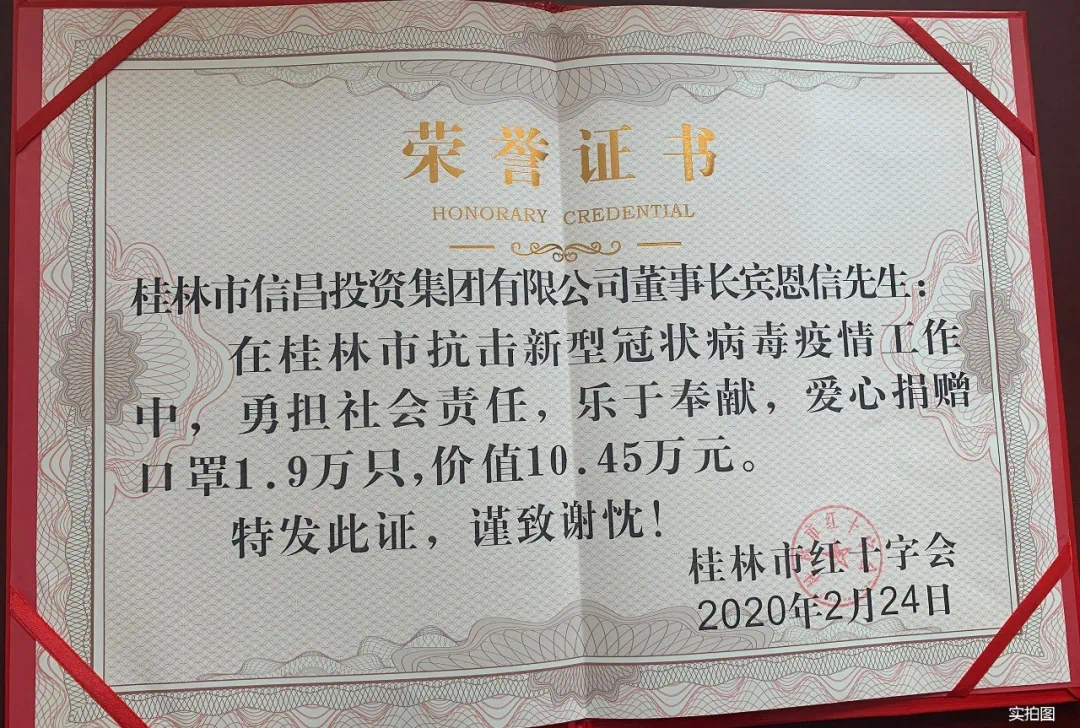 荣誉证书
HONORARY CREDENTIAL
桂林市信昌投资集团有限公司董事长宾恩信先生：
在桂林市抗击新型冠状病毒疫情工作
中，勇担社会责任，乐于奉献，爱心捐赠
口罩1.9万只，价值10.45万元。
特发此证，谨致谢忱！
桂林市红十字会
2020年2月24日
实拍图